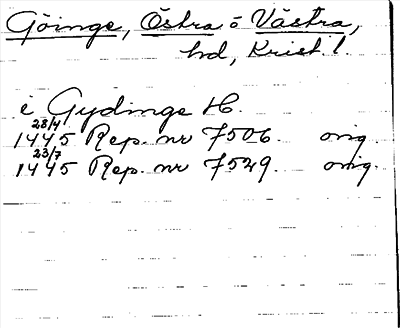 Göinge, Östra o Västra,
hd, Krist. l.
i Gydinge H.
28/4
1445 Rep. nr 7506 orig.
23/7
1445 Rep. nr 7529. orig.